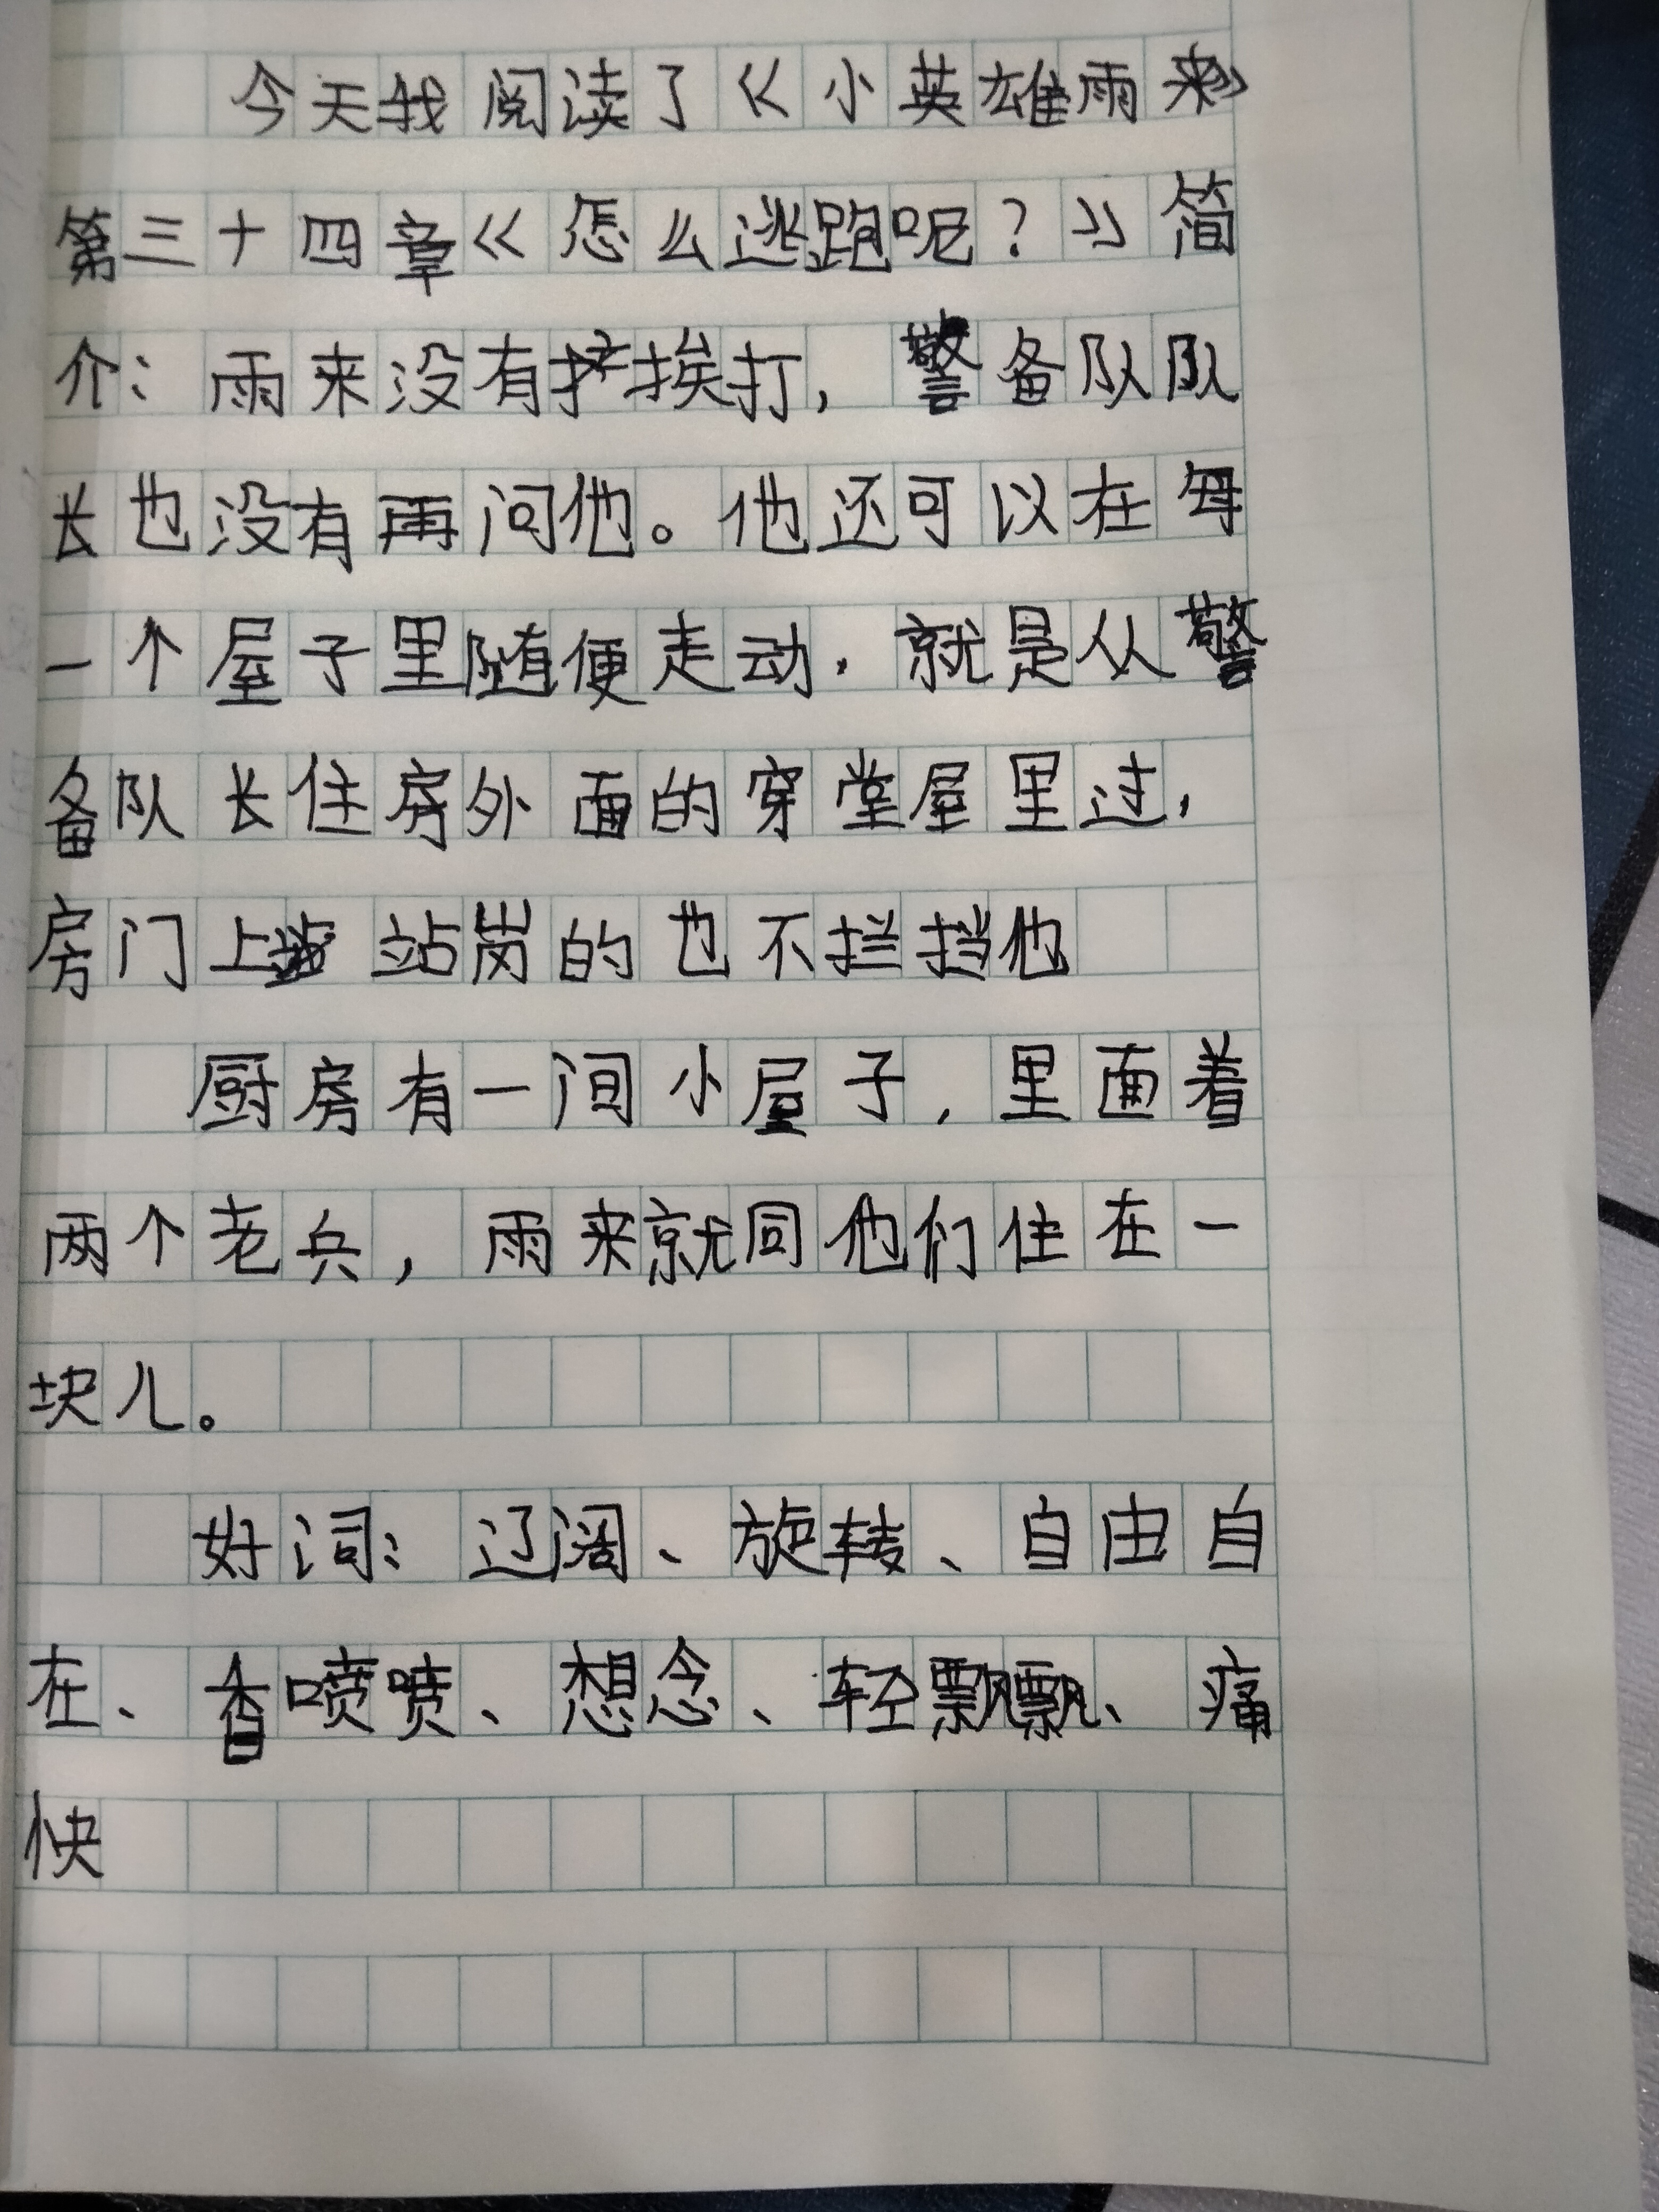 今天我阅读了《小英雄雨来》
第三十四章《怎么逃跑呢？》简
介：雨来没有挨打，警备队队
长也没有再问他。他还可以在每
一个屋子里随便走动，就是从警
备队长住房外面的穿堂屋里过，
房门上站岗的也不拦挡他
厨房有一间小屋子，里面着
两个老兵，雨来就同他们住在一
块儿。
好词：辽阔、旋转、自由自
在、香喷喷、想念、轻飘飘、痛
快